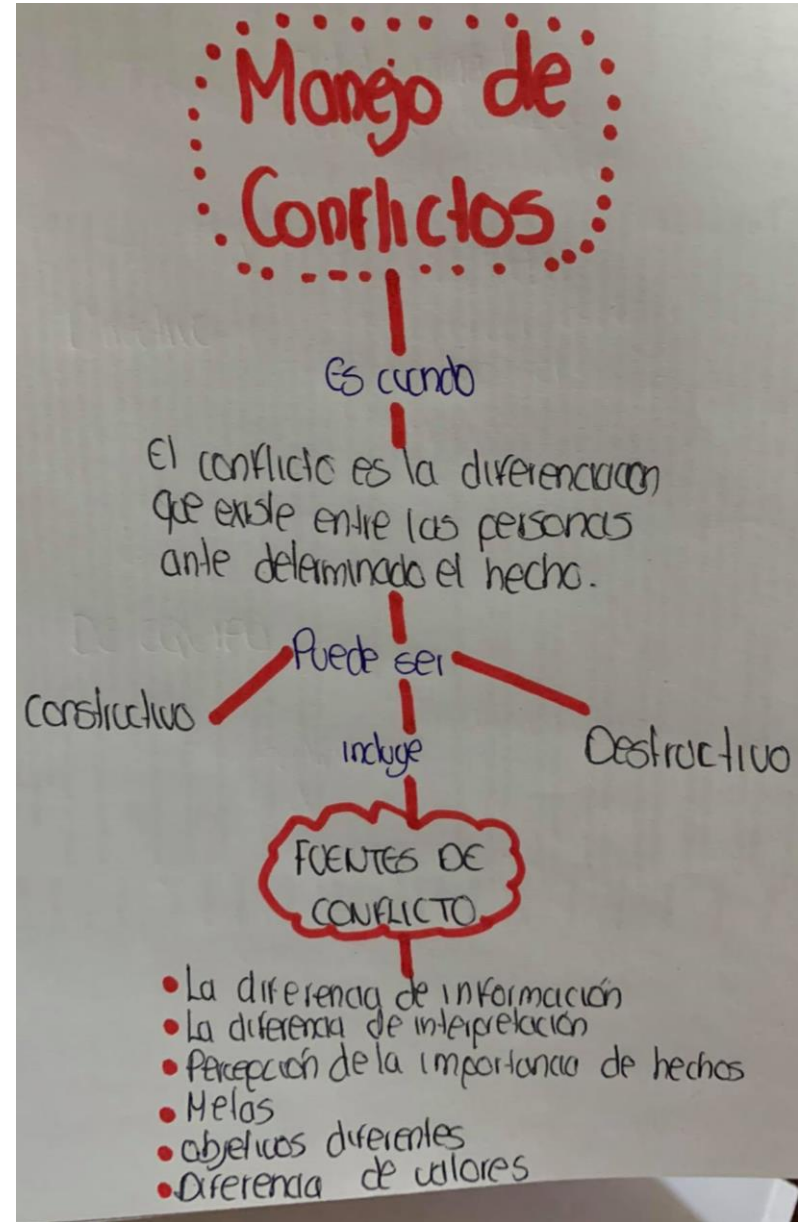 Manejo de
Conflictos
Es cuando
El conflicto es la diferenciacion
que existe entre las personas
ante determinado el hecho.
Puede ser
Constructivo
Destructivo
incluye
FUENTES DE
CONFLICTO
• La diferencia de información
• La diferencia de interpretación
• Percepción de la importancia de hechos
• Metas
• objetivos diferentes
• Diferencia de valores